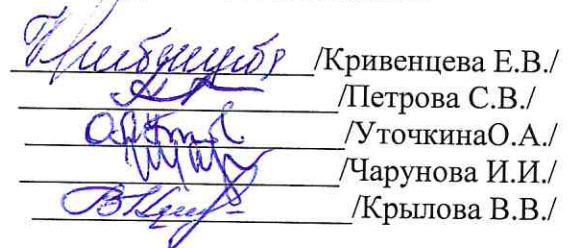 /Кривенцева Е.В./
/Петрова С.В./
/УточкинаО.А./
/Чарунова И.И./
/Крылова В.В./